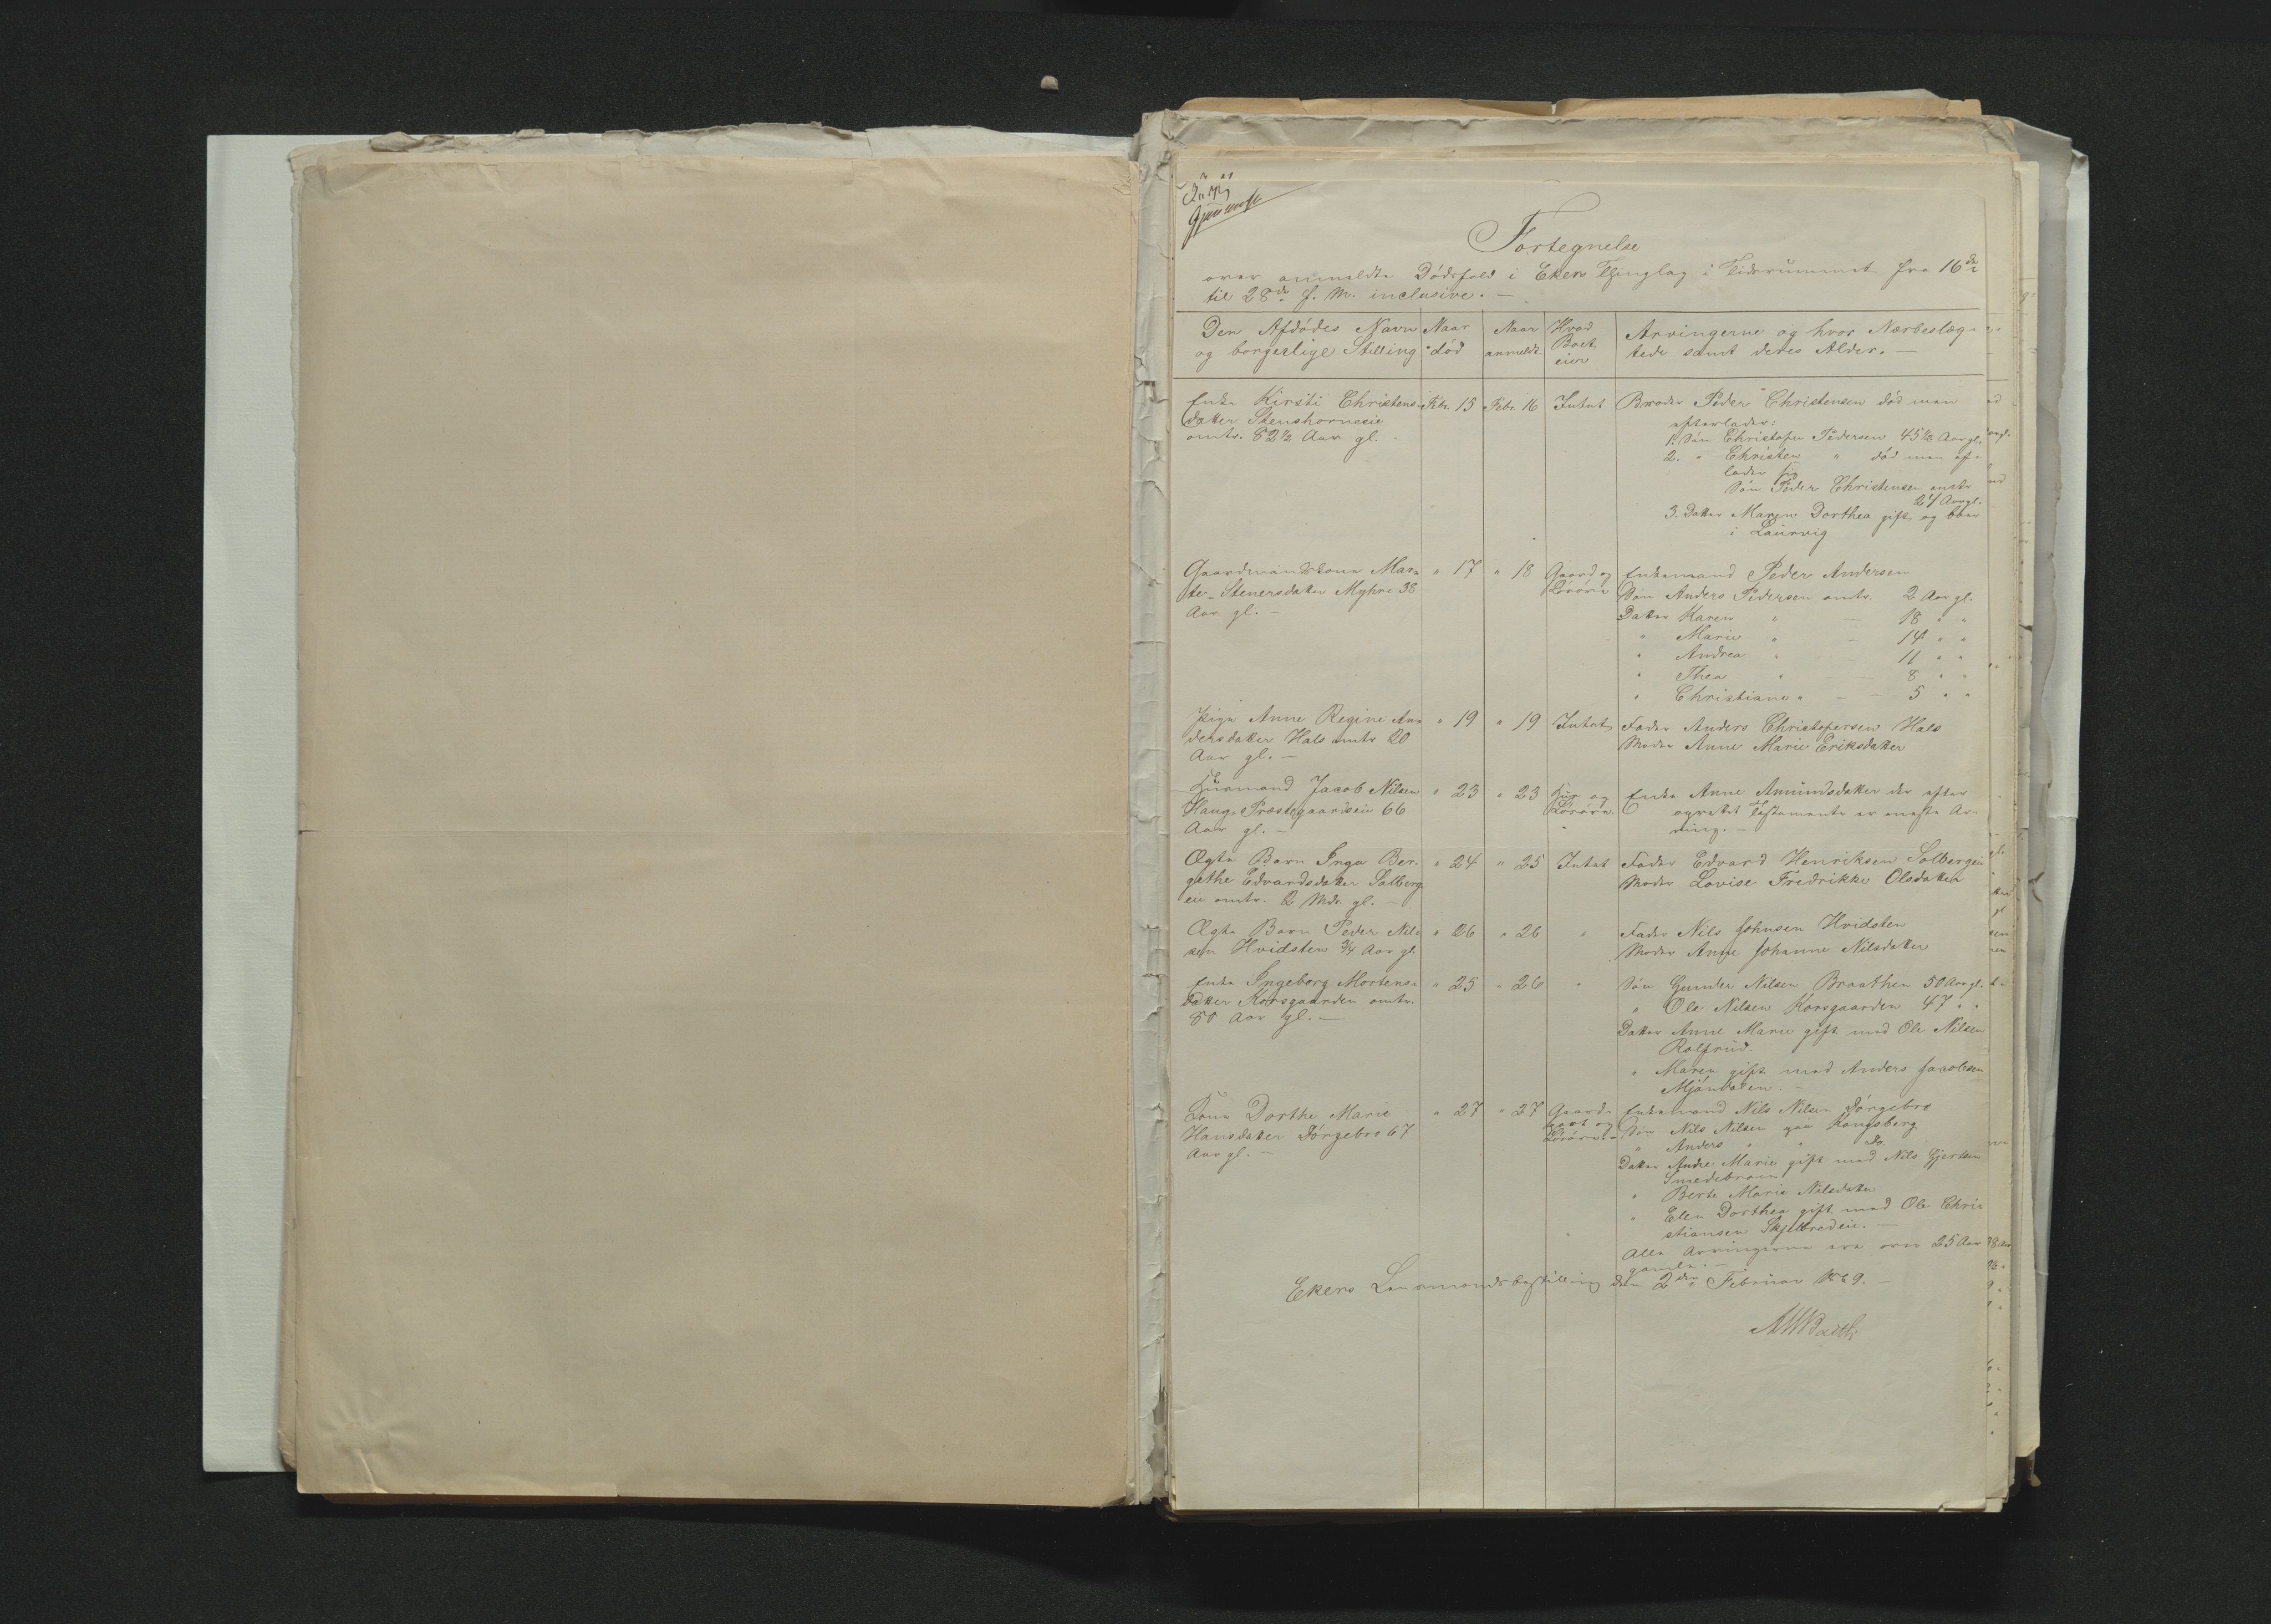 Fortegnelse
over anmeldte Dödsfald i Ekers Thinglag i Tidsrummet fra 16de
til 28de f. M. inclusive. —
Den Afdödes Navn og borgerlige Stilling
Naar död
Naar anmeldt.
Hvad Boet eier
Arvingerne og hvor Nærbeslægtede samt deres Alder. —
Enke Kirsti Christens-
datter Stenshorneeie
omtr. 82½ Aar gl. -
Febr. 15
Febr. 16
Intet
Broder Peder Christensen död men
efterlader:
1. Sön Christofer Pedersen 45½ Aar gl.
2. " Christen " död men ef-
lader sig
Sön Peder Christensen omtr
24 Aar gl.
3. Datter Maren Dorthea gift og boer
i Laurvig
Gaardmandskone Mar-
te Stenersdatter Myhre 38
Aar gl. —
" 17
" 18
Gaard og
Lösöre
Enkemand Peder Andersen
Sön Anders Pedersen omtr. 2 Aar gl.
Datter Karen " — 18 " "
" Marie " — 14 " "
" Andrea " — 11 " "
" Thea " — 8 " "
" Christiane " — 5 " "
Pige Anne Regine An-
dersdatter Hals omtr 20
Aar gl. —
" 19
" 19
Intet
Fader Anders Christofersen Hals
Moder Anne Marie Eriksdatter
Huusmand Jacob Nilsen
Haugs Præstegaardseie 66
Aar gl. —
" 23
" 23
Huus og
Lösöre.
Enke Anne Amundsdatter der efter
oprettet Testamente er eneste Ar-
ving. —
Ægte Barn Inga Ber-
gethe Edvardsdatter Solberg
eie omtr. 2 Mdr. gl. —
" 24
" 25
Intet
Fader Edvard Henriksen Solbergeie
Moder Lovise Fredrikke Olsdatter
Ægte Barn Peder Nil-
sen Hvidsten ¾ Aar gl.
" 26
" 26
"
Fader Nils Johnsen Hvidsten
Moder Anne Johanne Nilsdatter
Enke Ingeborg Mortens-
datter Korsgaarden omtr.
80 Aar gl. —
" 25
" 26
"
Sön Gunder Nilsen Braathen 50 Aar gl.
" Ole Nilsen Korsgaarden 47 " "
Datter Anne Marie gift med Ole Nilsen
Rolfrud.
" Maren gift med Anders Jacobsen
Mjöndalen. —
Kone Dorthe Marie
Hansdatter Dörgebro 67
Aar gl. —
" 27
" 27
Gaard-
part og
Lösöre
Enkemand Nils Nilsen Dörgebro
Sön Nils Nilsen paa Kongsberg
" Anders " " do.
Datter Andre Marie gift med Nils Gjertsen
Smedebraaten
" Berte Marie Nilsdatter
" Elen Dorthea gift med Ole Chri-
stiansen Skjelbredeie. —
Alle Arvingerne ere over 25 Aar
gamle. —
Ekers Lensmandsbestilling den 2den Februar 1869. —